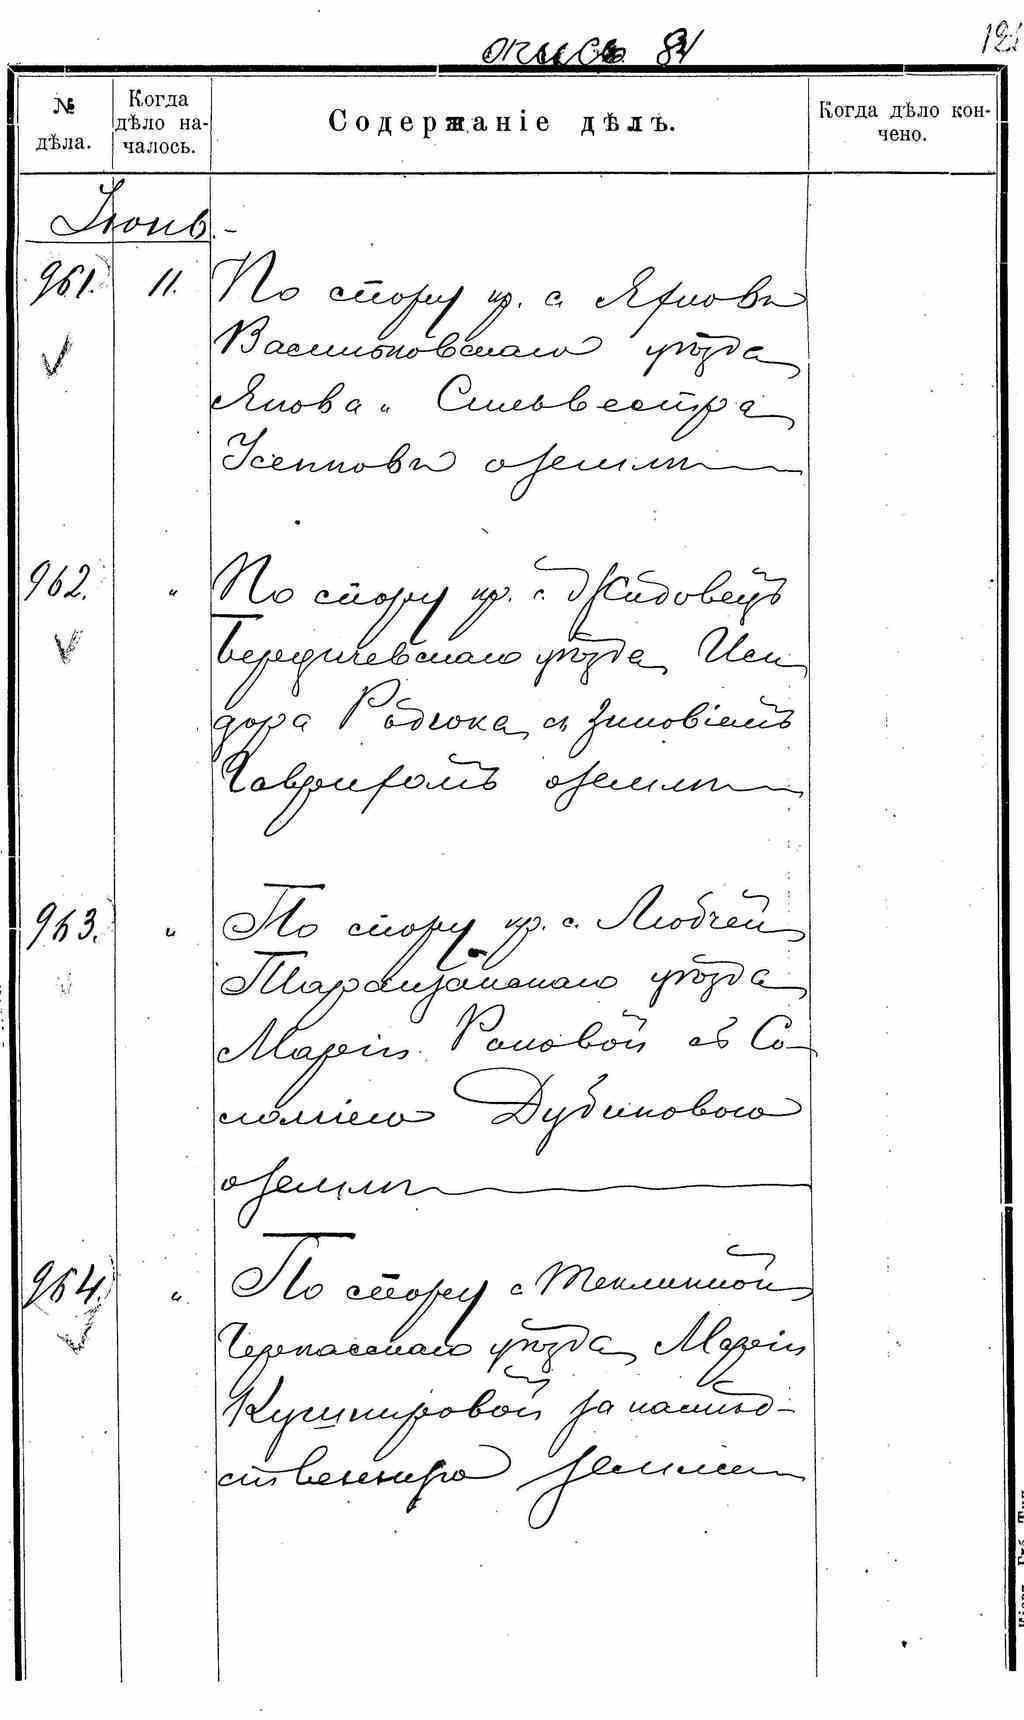 опись 81
№ дѣла.
Когда дѣло началось.
Содержаніе дѣлъ.
Когда дѣло кончено.
Іюнь.
961. 11. По спору кр. с.
Васильковскаго уѣзда
Якова и Сильвестра
о землѣ
962. " По спору кр. с. Жидовецъ
Бердичевскаго уѣзда Иси
дора Радюка съ Зиновіемъ
о землѣ
963. " По спору кр. с.
Таращанскаго уѣзда
Маріи Раковой съ Со
ломіею Дубиновою
о землѣ
964. " По спору с Теклиной
Черкасскаго уѣзда Маріи
Кушнировой за наслѣд-
ственную землю